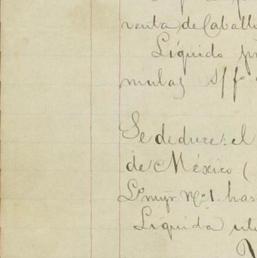 venta de Caball
Líquido pr
mulas s/f
Se deduce: el
de México (
has
Líquida uti